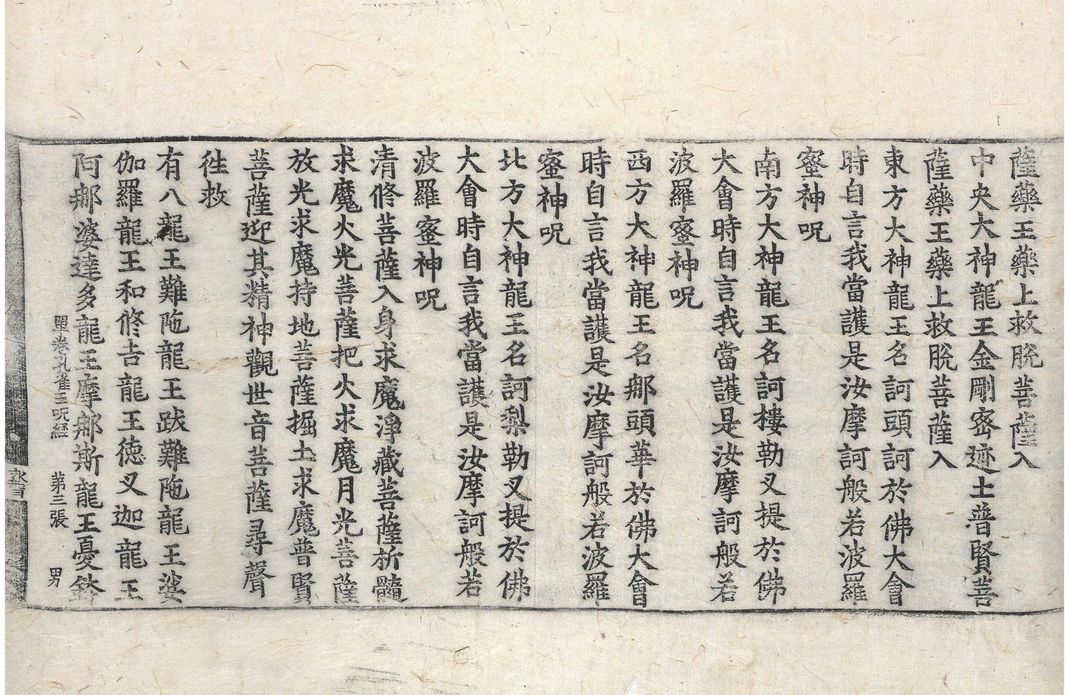 薩藥王藥上救脫菩薩入
中央大神龍王金剛密迹士普賢菩
薩藥王藥上救脫菩薩入
東方大神龍王名訶頭訶於佛大會
時自言我當護是汝摩訶般若波羅
蜜神呪
南方大神龍王名訶樓勒叉提於佛
大會時自言我當護是汝摩訶般若
波羅蜜神呪
西方大神龍王名那頭華於佛大會
時自言我當護是汝摩訶般若波羅
蜜神呪
北方大神龍王名訶梨勒叉提於佛
大會時自言我當護是汝摩訶般若
波羅蜜神呪
清修菩薩入身求魔淨藏菩薩析髓
求魔火光菩薩把火求魔月光菩薩
放光求魔持地菩薩掘土求魔普賢
菩薩迎其精神觀世音菩薩尋聲
徃救
有八龍王難陁龍王跋難陁龍王婆
伽羅龍王和修吉龍王德叉迦龍王
阿那婆達多龍王摩那斯龍王憂鉢
單卷孔雀王呪経 第三張 男